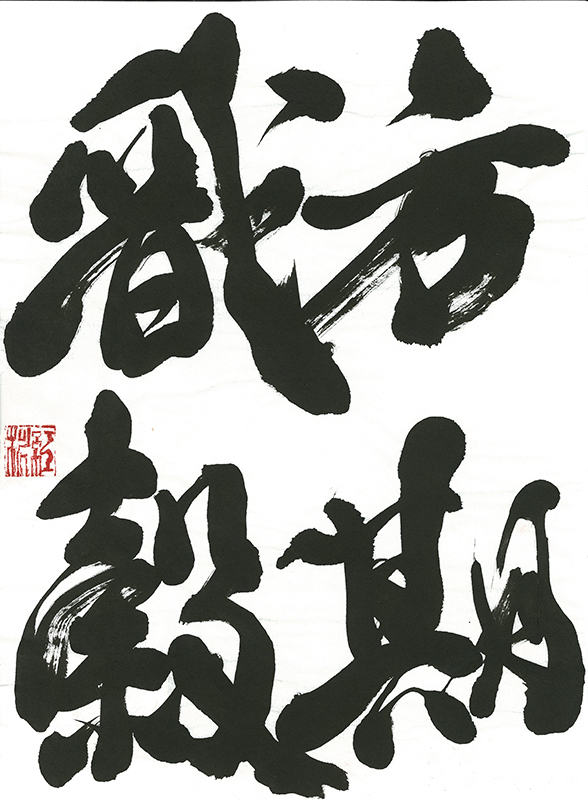 方期
戩穀